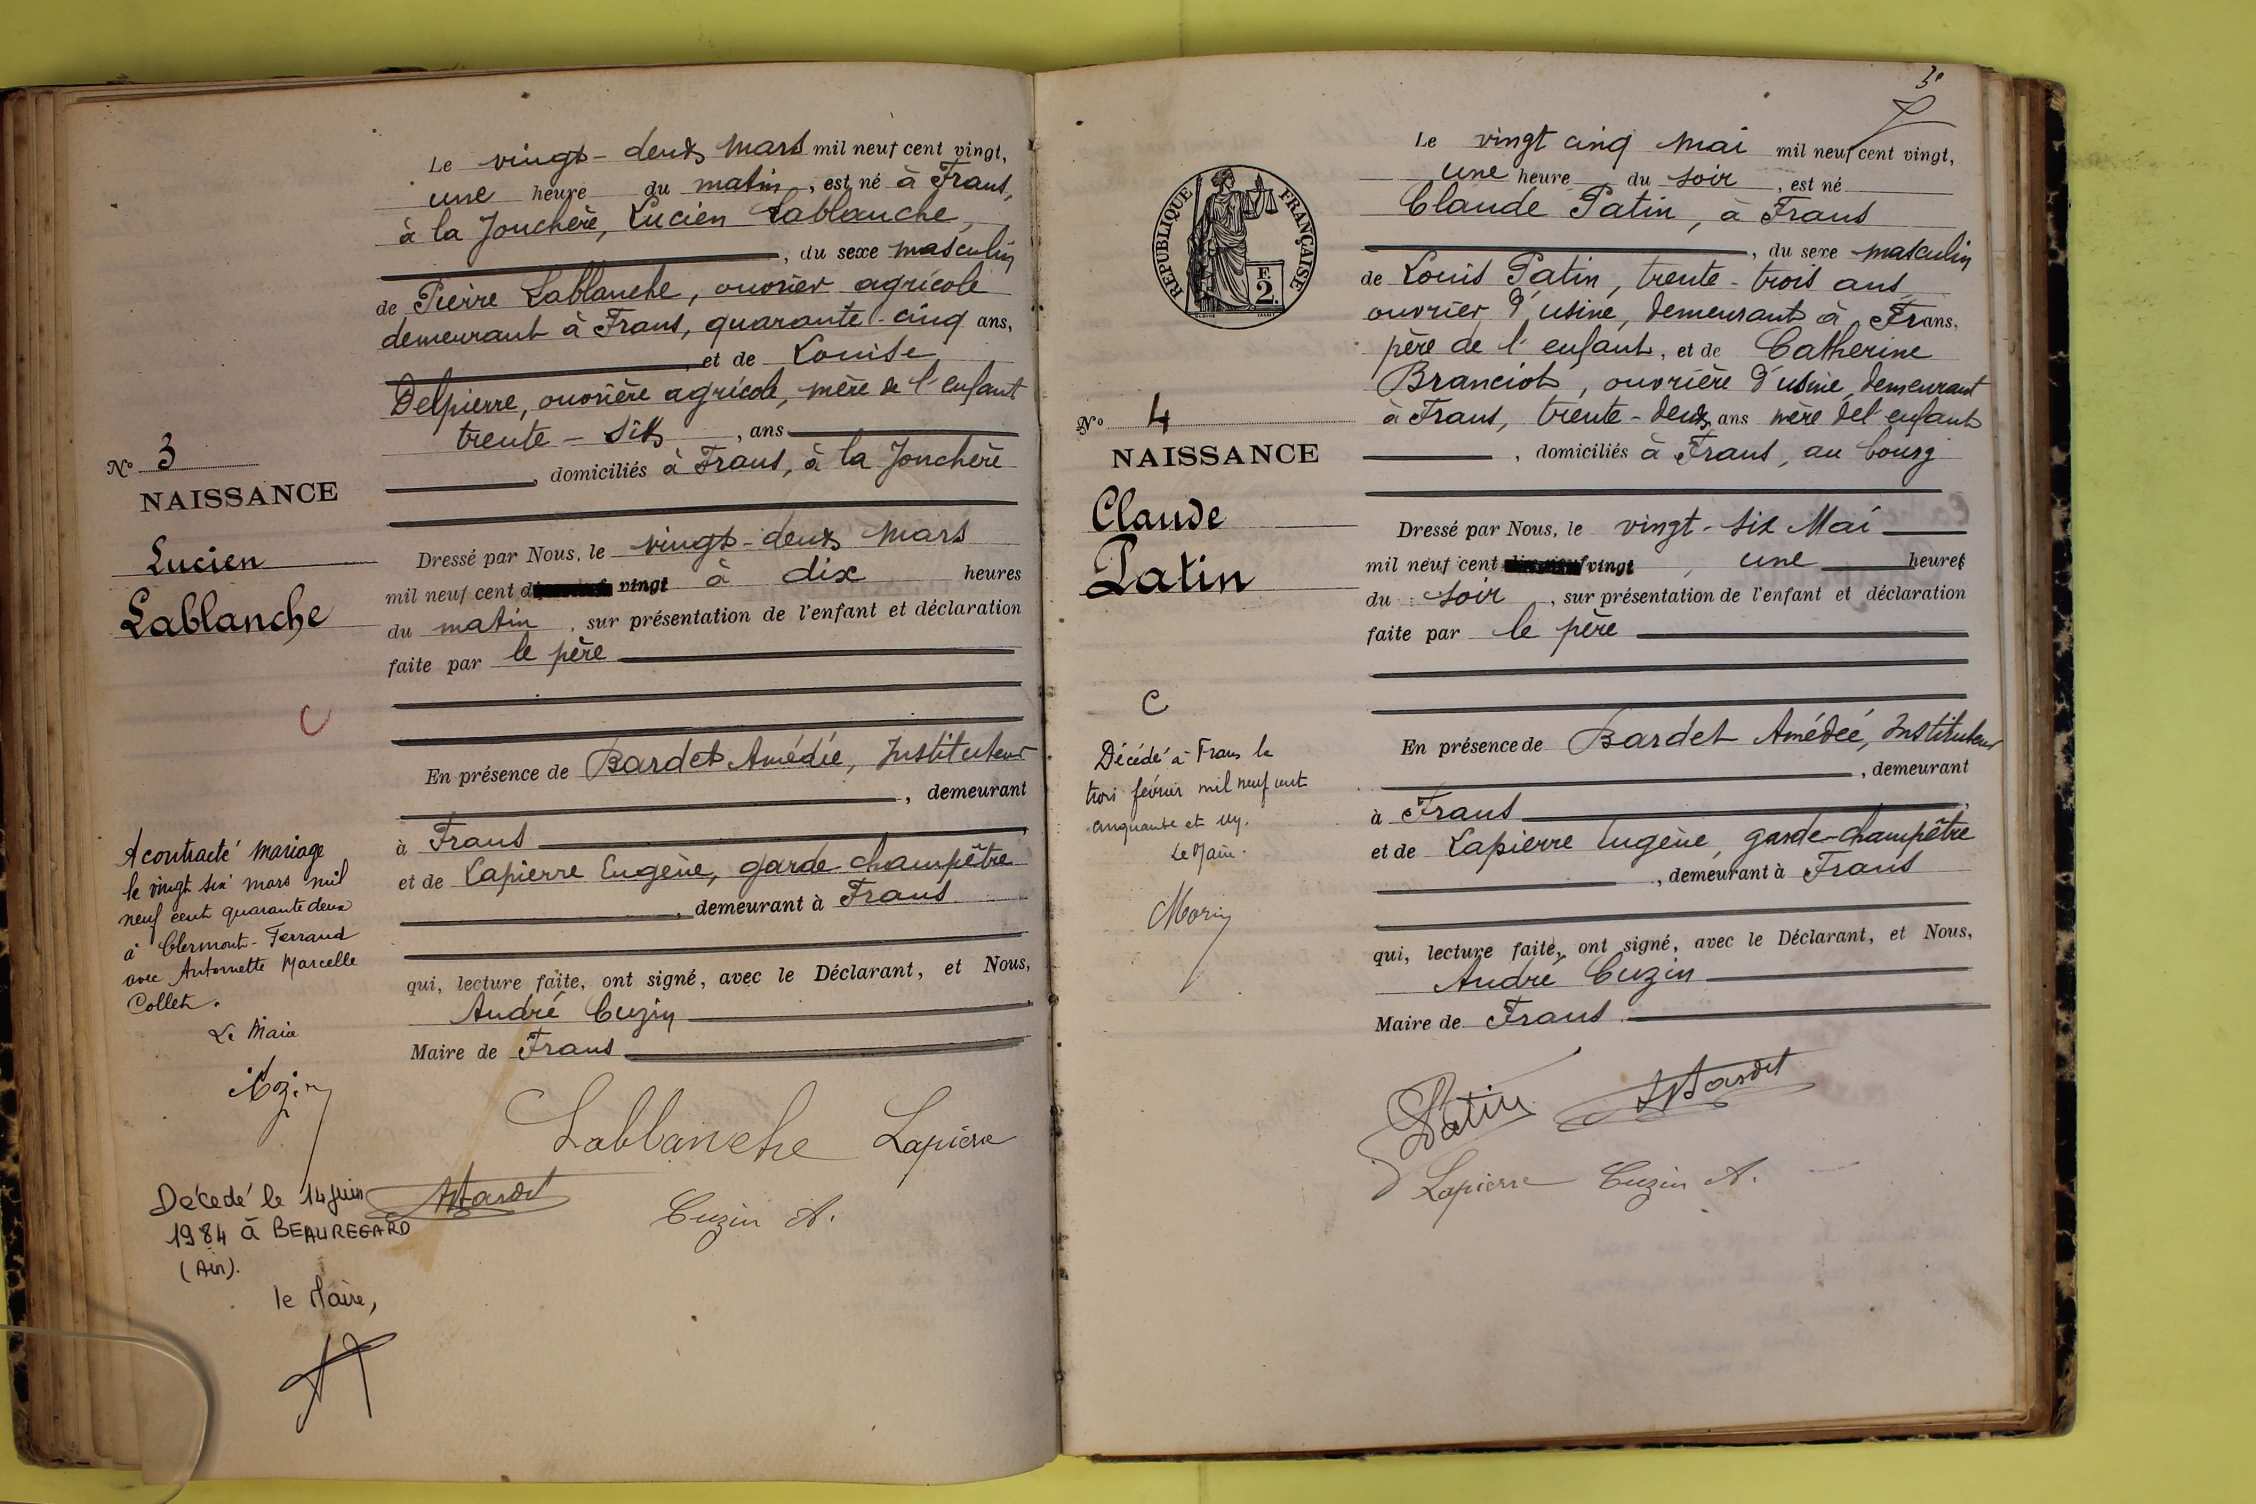 Le vingt-deux mars mil neuf cent vingt,
une heure du matin, est né à Frans,
à la Jonchère, Lucien Lablanche,
, du sexe masculin
de Pierre Lablanche, ouvrier agricole
demeurant à Frans, quarante-cinq ans,
et de Louise
Delpierre, ouvrière agricole, mère de l'enfant
trente-six, ans
, domiciliés à Frans, à la Jonchère
No 3
NAISSANCE
Lucien
Lablanche
Dressé par Nous, le vingt-deux mars
mil neuf cent vingt à dix heures
du matin, sur présentation de l'enfant et déclaration
faite par le père
C
En présence de Bardet Amédée, Instituteur
, demeurant
à Frans
et de Lapierre Eugène, garde champêtre
, demeurant à Frans
qui, lecture faite, ont signé, avec le Déclarant, et Nous,
André Cuzin
Maire de Frans
A contracté mariage
le vingt six mars mil
neuf cent quarante deux
à Clermont-Ferrand
avec Antoinette Marcelle
Collet.
Le Maire
Lablanche Lapierre
ABardet
Cuzin A.
Décedé le 14 juin
1984 à BEAUREGARD
(Ain).
le Maire,
3e
Le vingt cinq mai mil neuf cent vingt,
une heure du soir, est né
Claude Patin, à Frans
, du sexe masculin
de Louis Patin, trente-trois ans
ouvrier d'usine, demeurant à Frans,
père de l'enfant, et de Catherine
Branciot, ouvrière d'usine, demeurant
à Frans, trente-deux ans mère de l'enfant
, domiciliés à Frans, au bourg
RÉPUBLIQUE FRANÇAISE
F.
2.
No 4
NAISSANCE
Claude
Patin
Dressé par Nous, le vingt-six Mai
mil neuf cent vingt, une heures
du soir, sur présentation de l'enfant et déclaration
faite par le père
C
En présence de Bardet Amédée, Instituteur
, demeurant
à Frans
et de Lapierre Eugène, garde-champêtre
, demeurant à Frans
qui, lecture faite, ont signé, avec le Déclarant, et Nous,
André Cuzin
Maire de Frans
Décédé à Frans le
trois février mil neuf cent
cinquante et un.
Le Maire.
Morin
Patin ABardet
Lapierre Cuzin A.